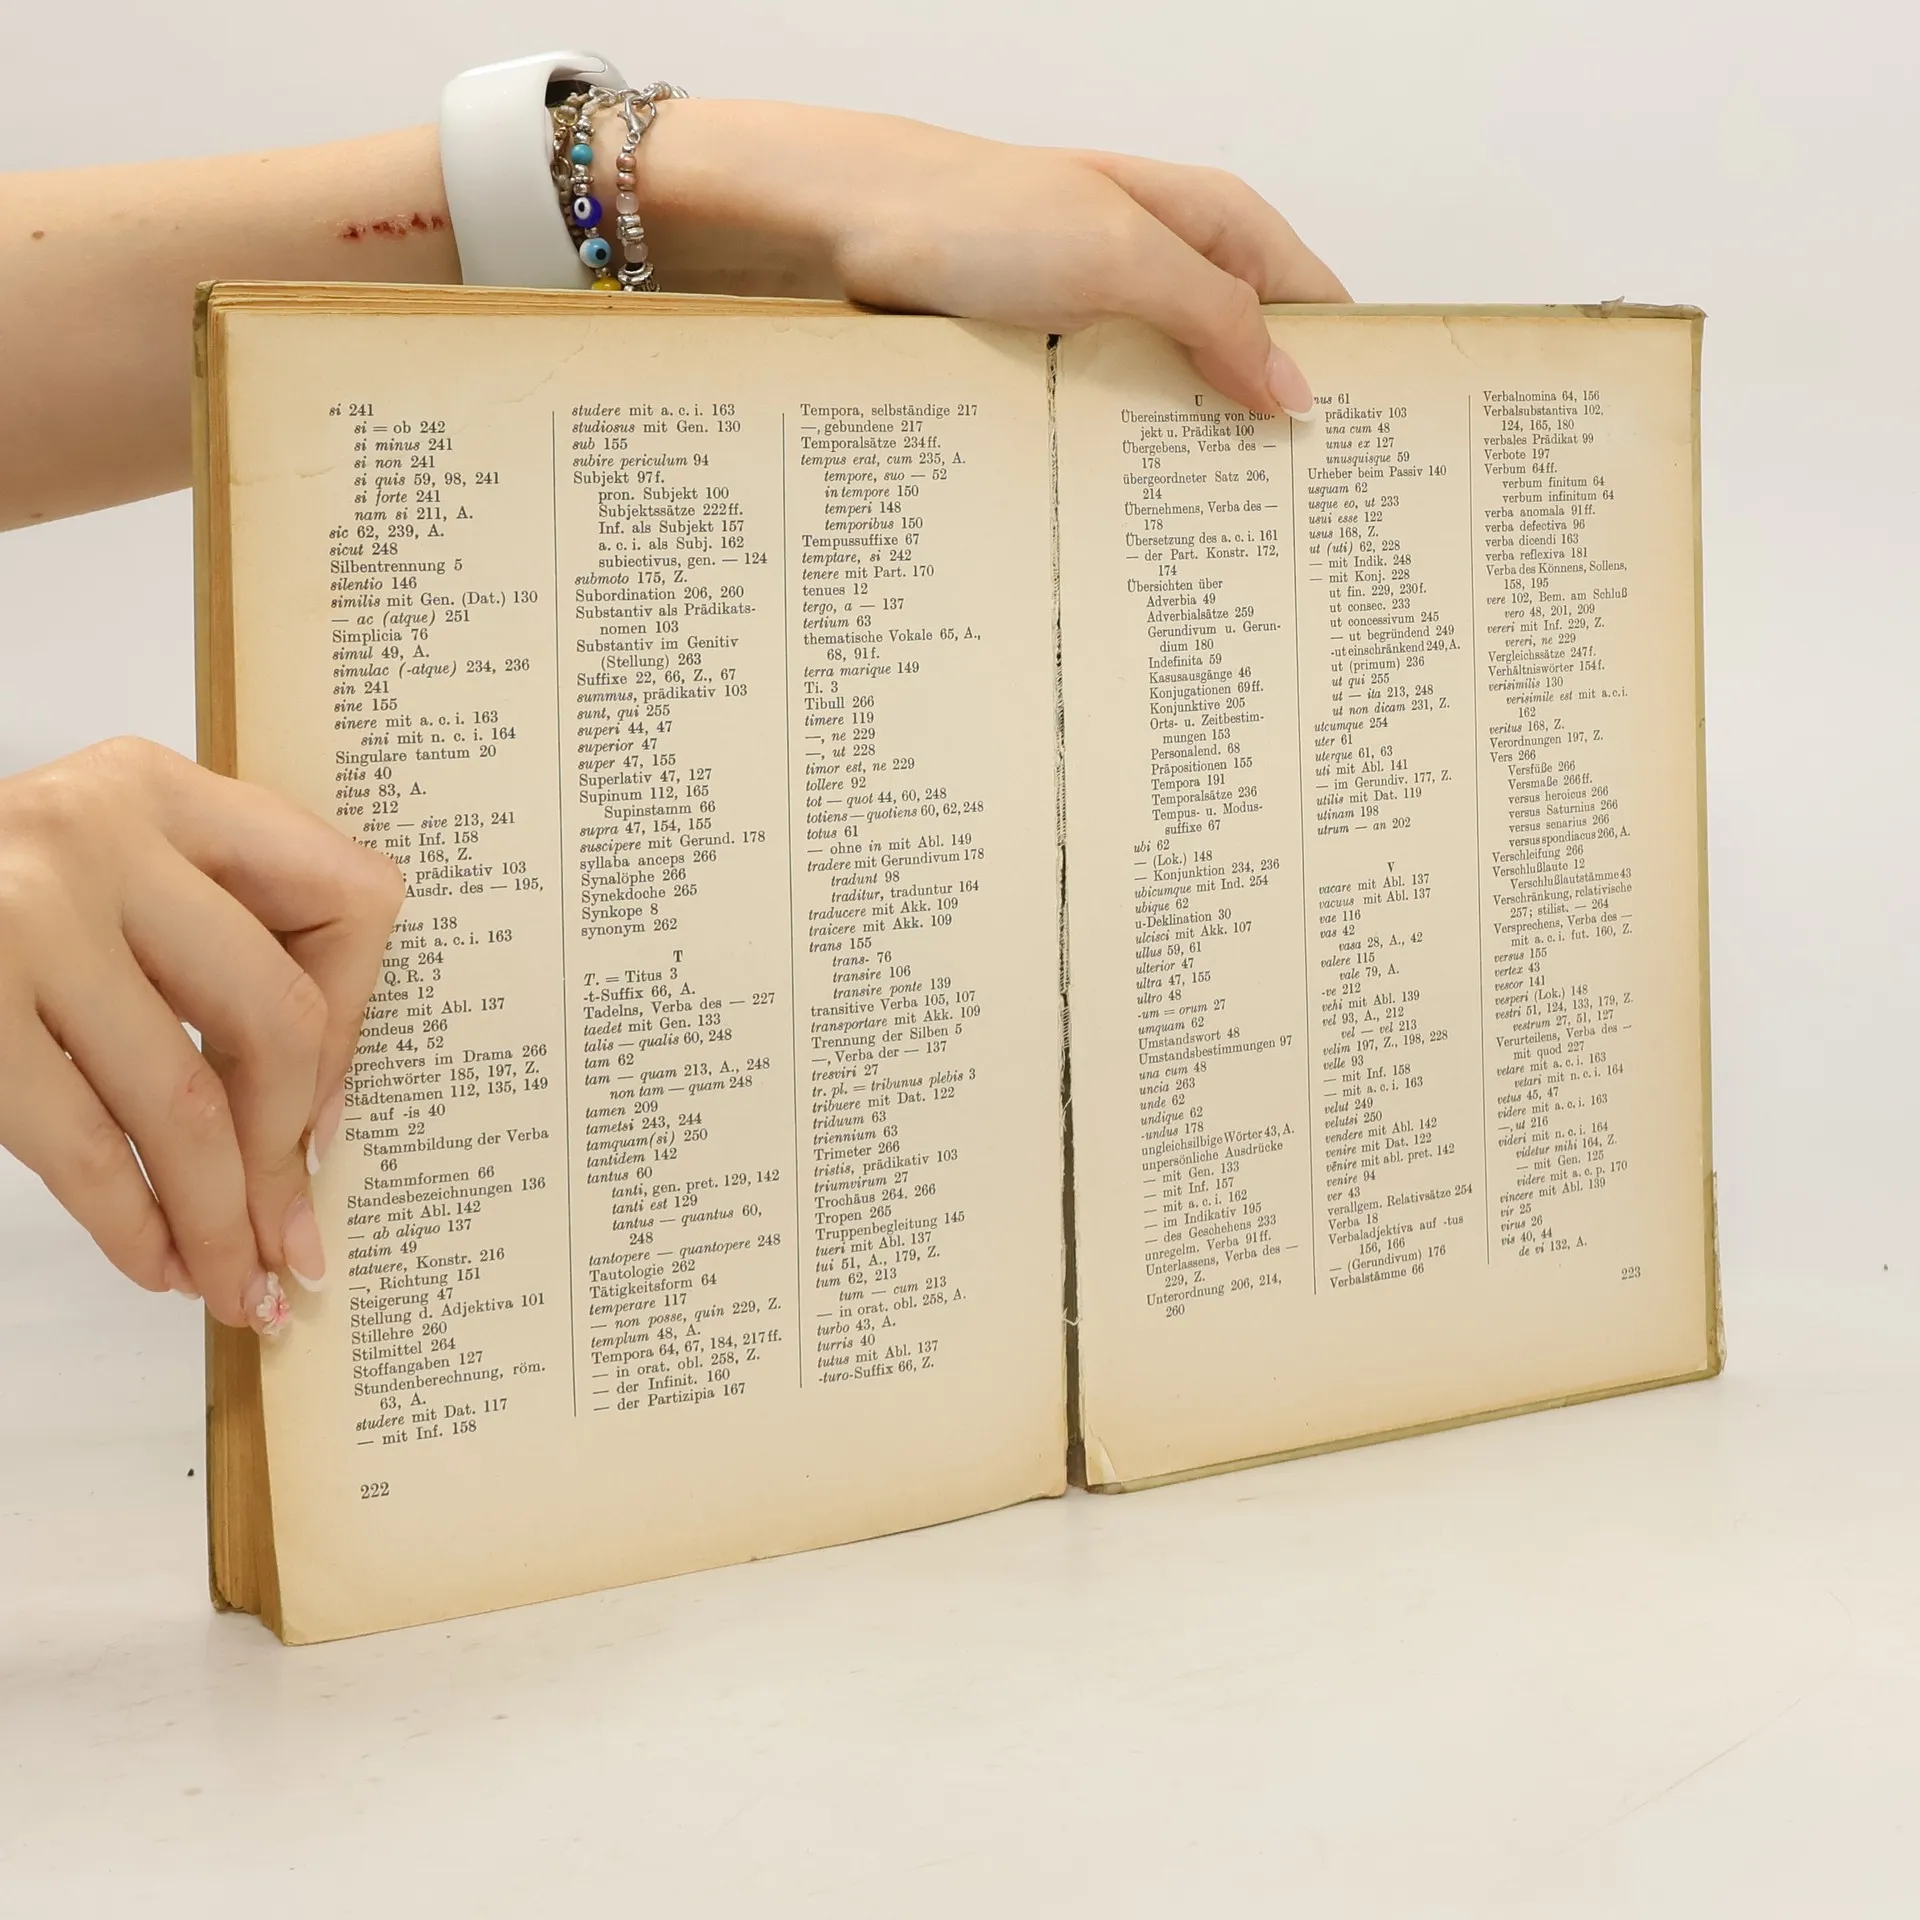 si 241
si = ob 242
si minus 241
si non 241
si quis 59, 98, 241
si forte 241
nam si 211, A.
sic 62, 239, A.
sicut 248
Silbentrennung 5
silentio 146
similis mit Gen. (Dat.) 130
— ac (atque) 251
Simplicia 76
simul 49, A.
simulac (-atque) 234, 236
sin 241
sine 155
sinere mit a. c. i. 163
sini mit n. c. i. 164
Singulare tantum 20
sitis 40
situs 83, A.
sive 212
sive — sive 213, 241
mit Inf. 158
168, Z.
; prädikativ 103
Ausdr. des — 195,
138
mit a. c. i. 163
264
Q. R. 3
12
mit Abl. 137
266
44, 52
im Drama 266
Sprichwörter 185, 197, Z.
Städtenamen 112, 135, 149
— auf -is 40
Stamm 22
Stammbildung der Verba
66
Stammformen 66
Standesbezeichnungen 136
stare mit Abl. 142
— ab aliquo 137
statim 49
statuere, Konstr. 216
—, Richtung 151
Steigerung 47
Stellung d. Adjektiva 101
Stillehre 260
Stilmittel 264
Stoffangaben 127
Stundenberechnung, röm.
63, A.
studere mit Dat. 117
— mit Inf. 158
222
studere mit a. c. i. 163
studiosus mit Gen. 130
sub 155
subire periculum 94
Subjekt 97f.
pron. Subjekt 100
Subjektssätze 222ff.
Inf. als Subjekt 157
a. c. i. als Subj. 162
subiectivus, gen. — 124
submoto 175, Z.
Subordination 206, 260
Substantiv als Prädikats-
nomen 103
Substantiv im Genitiv
(Stellung) 263
Suffixe 22, 66, Z., 67
summus, prädikativ 103
sunt, qui 255
superi 44, 47
superior 47
super 47, 155
Superlativ 47, 127
Supinum 112, 165
Supinstamm 66
supra 47, 154, 155
suscipere mit Gerund. 178
syllaba anceps 266
Synalöphe 266
Synekdoche 265
Synkope 8
synonym 262
T
T. = Titus 3
-t-Suffix 66, A.
Tadelns, Verba des — 227
taedet mit Gen. 133
talis — qualis 60, 248
tam 62
tam — quam 213, A., 248
non tam — quam 248
tamen 209
tametsi 243, 244
tamquam(si) 250
tantidem 142
tantus 60
tanti, gen. pret. 129, 142
tanti est 129
tantus — quantus 60,
248
tantopere — quantopere 248
Tautologie 262
Tätigkeitsform 64
temperare 117
— non posse, quin 229, Z.
templum 48, A.
Tempora 64, 67, 184, 217ff.
— in orat. obl. 258, Z.
— der Infinit. 160
— der Partizipia 167
Tempora, selbständige 217
—, gebundene 217
Temporalsätze 234ff.
tempus erat, cum 235, A.
tempore, suo — 52
in tempore 150
temperi 148
temporibus 150
Tempussuffixe 67
temptare, si 242
tenere mit Part. 170
tenues 12
tergo, a — 137
tertium 63
thematische Vokale 65, A.,
68, 91f.
terra marique 149
Ti. 3
Tibull 266
timere 119
—, ne 229
—, ut 228
timor est, ne 229
tollere 92
tot — quot 44, 60, 248
totiens — quotiens 60, 62, 248
totus 61
— ohne in mit Abl. 149
tradere mit Gerundivum 178
tradunt 98
traditur, traduntur 164
traducere mit Akk. 109
traicere mit Akk. 109
trans 155
trans- 76
transire 106
transire ponte 139
transitive Verba 105, 107
transportare mit Akk. 109
Trennung der Silben 5
—, Verba der — 137
tresviri 27
tr. pl. = tribunus plebis 3
tribuere mit Dat. 122
triduum 63
triennium 63
Trimeter 266
tristis, prädikativ 103
triumvirum 27
Trochäus 264, 266
Tropen 265
Truppenbegleitung 145
tueri mit Abl. 137
tui 51, A., 179, Z.
tum 62, 213
tum — cum 213
— in orat. obl. 258, A.
turbo 43, A.
turris 40
tutus mit Abl. 137
-turo-Suffix 66, Z.
U
Übereinstimmung von Sub-
jekt u. Prädikat 100
Übergebens, Verba des —
178
übergeordneter Satz 206,
214
Übernehmens, Verba des —
178
Übersetzung des a. c. i. 161
— der Part. Konstr. 172,
174
Übersichten über
Adverbia 49
Adverbialsätze 259
Gerundivum u. Gerun-
dium 180
Indefinita 59
Kasusausgänge 46
Konjugationen 69ff.
Konjunktive 205
Orts- u. Zeitbestim-
mungen 153
Personalend. 68
Präpositionen 155
Tempora 191
Temporalsätze 236
Tempus- u. Modus-
suffixe 67
ubi 62
— (Lok.) 148
— Konjunktion 234, 236
ubicumque mit Ind. 254
ubique 62
u-Deklination 30
ulcisci mit Akk. 107
ullus 59, 61
ulterior 47
ultra 47, 155
ultro 48
-um = orum 27
umquam 62
Umstandswort 48
Umstandsbestimmungen 97
una cum 48
uncia 263
unde 62
undique 62
-undus 178
ungleichsilbige Wörter 43, A.
unpersönliche Ausdrücke
— mit Gen. 133
— mit Inf. 157
— mit a. c. i. 162
— im Indikativ 195
— des Geschehens 233
unregelm. Verba 91ff.
Unterlassens, Verba des —
229, Z.
Unterordnung 206, 214,
260
61
prädikativ 103
una cum 48
unus ex 127
unusquisque 59
Urheber beim Passiv 140
usquam 62
usque eo, ut 233
usui esse 122
usus 168, Z.
ut (uti) 62, 228
— mit Indik. 248
— mit Konj. 228
ut fin. 229, 230f.
ut consec. 233
ut concessivum 245
— ut begründend 249
-ut einschränkend 249, A.
ut (primum) 236
ut qui 255
ut — ita 213, 248
ut non dicam 231, Z.
utcumque 254
uter 61
uterque 61, 63
uti mit Abl. 141
— im Gerundiv. 177, Z.
utilis mit Dat. 119
utinam 198
utrum — an 202
V
vacare mit Abl. 137
vacuus mit Abl. 137
vae 116
vas 42
vasa 28, A., 42
valere 115
vale 79, A.
-ve 212
vehi mit Abl. 139
vel 93, A., 212
vel — vel 213
velim 197, Z., 198, 228
velle 93
— mit Inf. 158
— mit a. c. i. 163
velut 249
velutsi 250
vendere mit Abl. 142
venire mit Dat. 122
vēnire mit abl. pret. 142
venire 94
ver 43
verallgem. Relativsätze 254
Verba 18
Verbaladjektiva auf -tus
156, 166
— (Gerundivum) 176
Verbalstämme 66
Verbalnomina 64, 156
Verbalsubstantiva 102,
124, 165, 180
verbales Prädikat 99
Verbote 197
Verbum 64ff.
verbum finitum 64
verbum infinitum 64
verba anomala 91ff.
verba defectiva 96
verba dicendi 163
verba reflexiva 181
Verba des Könnens, Sollens,
158, 195
vere 102, Bem. am Schluß
vero 48, 201, 209
vereri mit Inf. 229, Z.
vereri, ne 229
Vergleichssätze 247f.
Verhältniswörter 154f.
verisimilis 130
verisimile est mit a.c.i.
162
veritus 168, Z.
Verordnungen 197, Z.
Vers 266
Versfüße 266
Versmaße 266ff.
versus heroicus 266
versus Saturnius 266
versus senarius 266
versus spondiacus 266, A.
Verschleifung 266
Verschlußlaute 12
Verschlußlautstämme 43
Verschränkung, relativische
257; stilist. — 264
Versprechens, Verba des —
mit a. c. i. fut. 160, Z.
versus 155
vertex 43
vescor 141
vesperi (Lok.) 148
vestri 51, 124, 133, 179, Z.
vestrum 27, 51, 127
Verurteilens, Verba des —
mit quod 227
vetare mit a. c. i. 163
vetari mit n. c. i. 164
vetus 45, 47
videre mit a. c. i. 163
—, ut 216
videri mit n. c. i. 164
videtur mihi 164, Z.
— mit Gen. 125
videre mit a. c. p. 170
vincere mit Abl. 139
vir 25
virus 26
vis 40, 44
de vi 132, A.
223